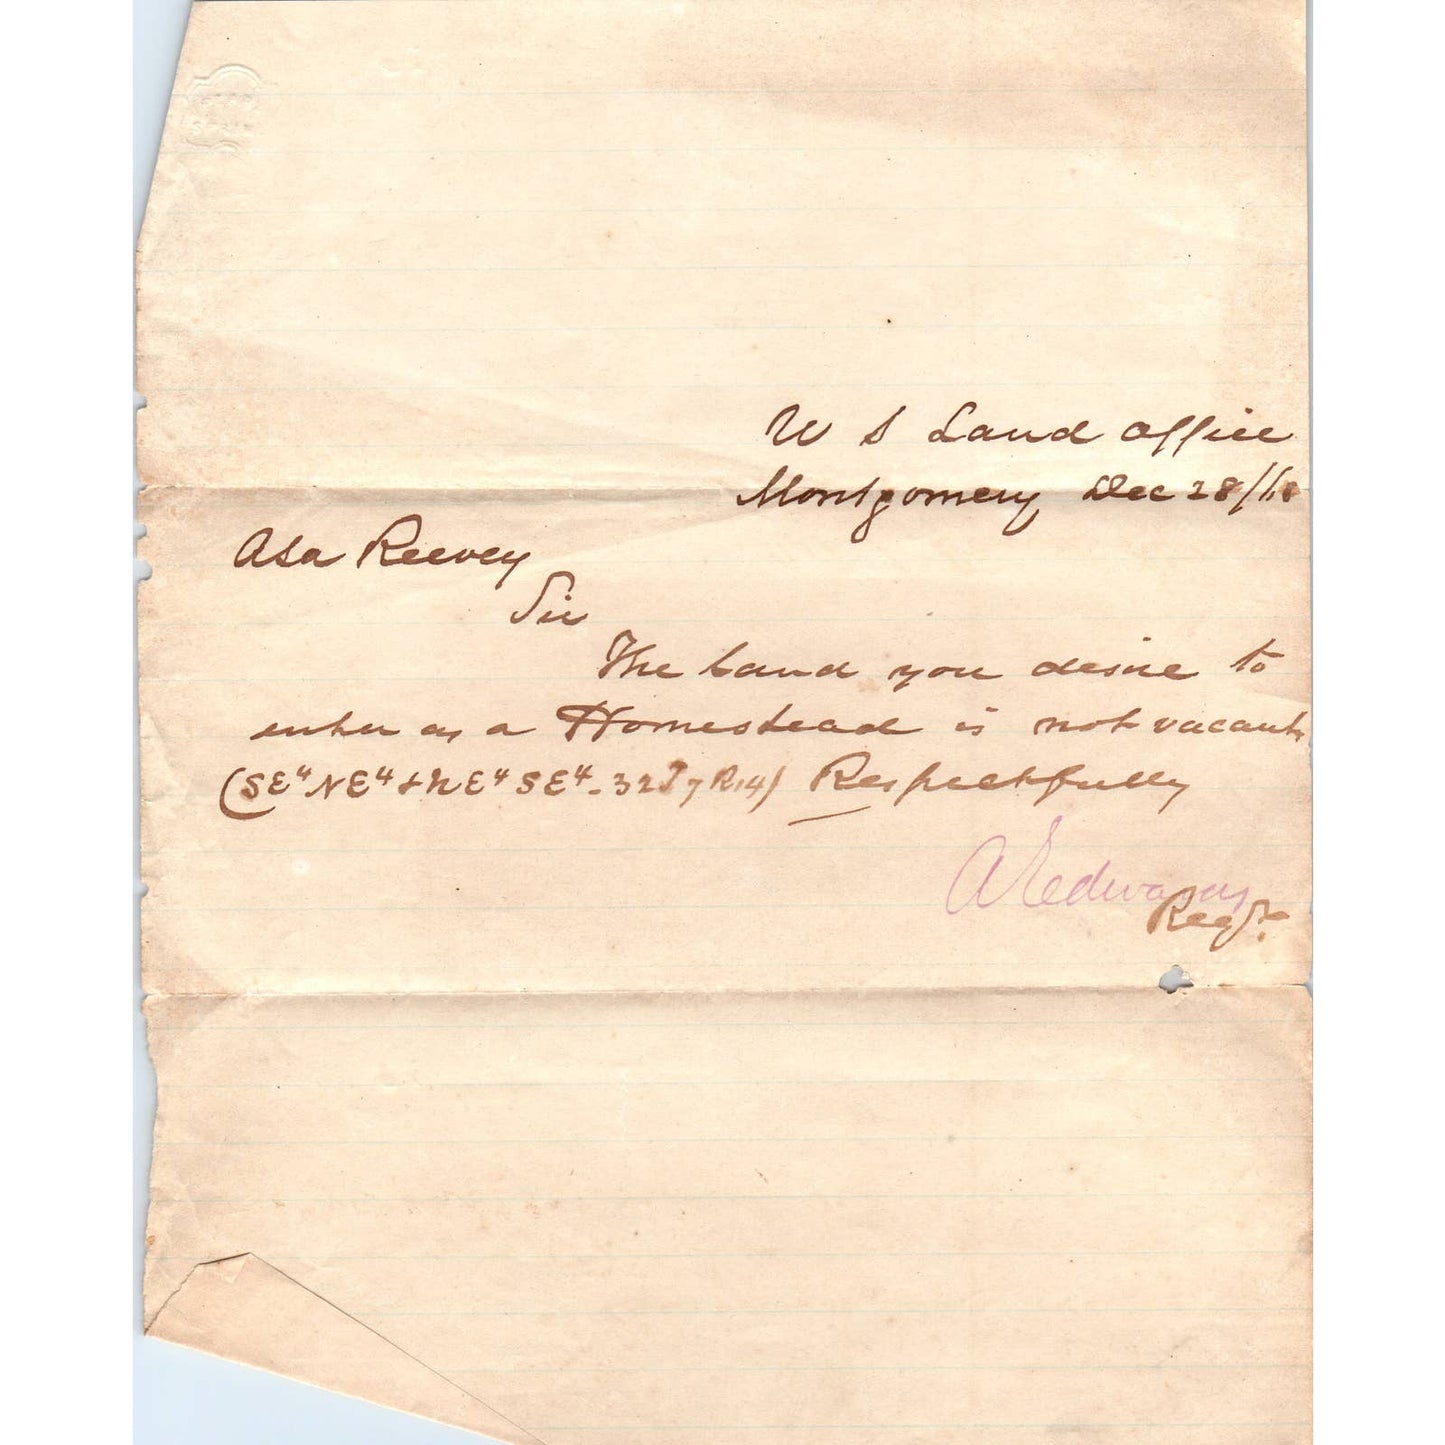 U S Land Office
Montgomery Dec 28/68
Asa Reevey
Sir
The land you desire to
enter as a Homestead is not vacant
(SE4 NE4 & NE4 SE4 - 32 T7 R14) Respectfully
A Edwards
Regr.